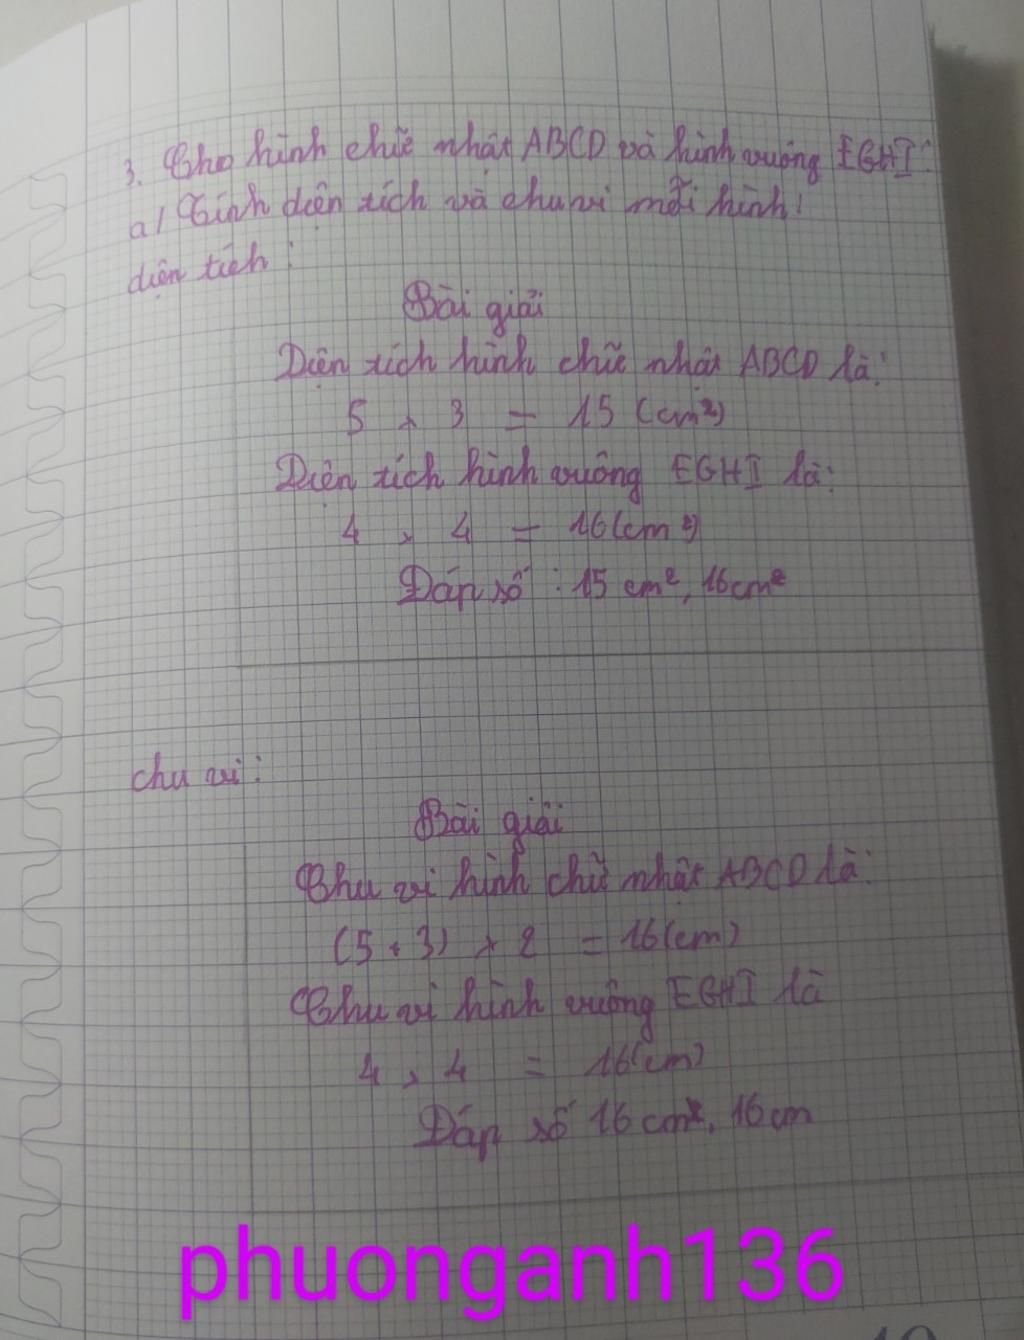 3. Cho hình chữ nhật ABCD và hình vuông EGHI:
a/ Tính diện tích và chu vi mỗi hình!
diện tích:
Bài giải
Diện tích hình chữ nhật ABCD là:
5 x 3 = 15 (cm²)
Diện tích hình vuông EGHI là:
4 x 4 = 16 (cm²)
Đáp số : 15 cm², 16 cm²
chu vi:
Bài giải
Chu vi hình chữ nhật ABCD là:
(5 + 3) x 2 = 16 (cm)
Chu vi hình vuông EGHI là
4 x 4 = 16 (cm)
Đáp số 16 cm, 16 cm
phuonganh136